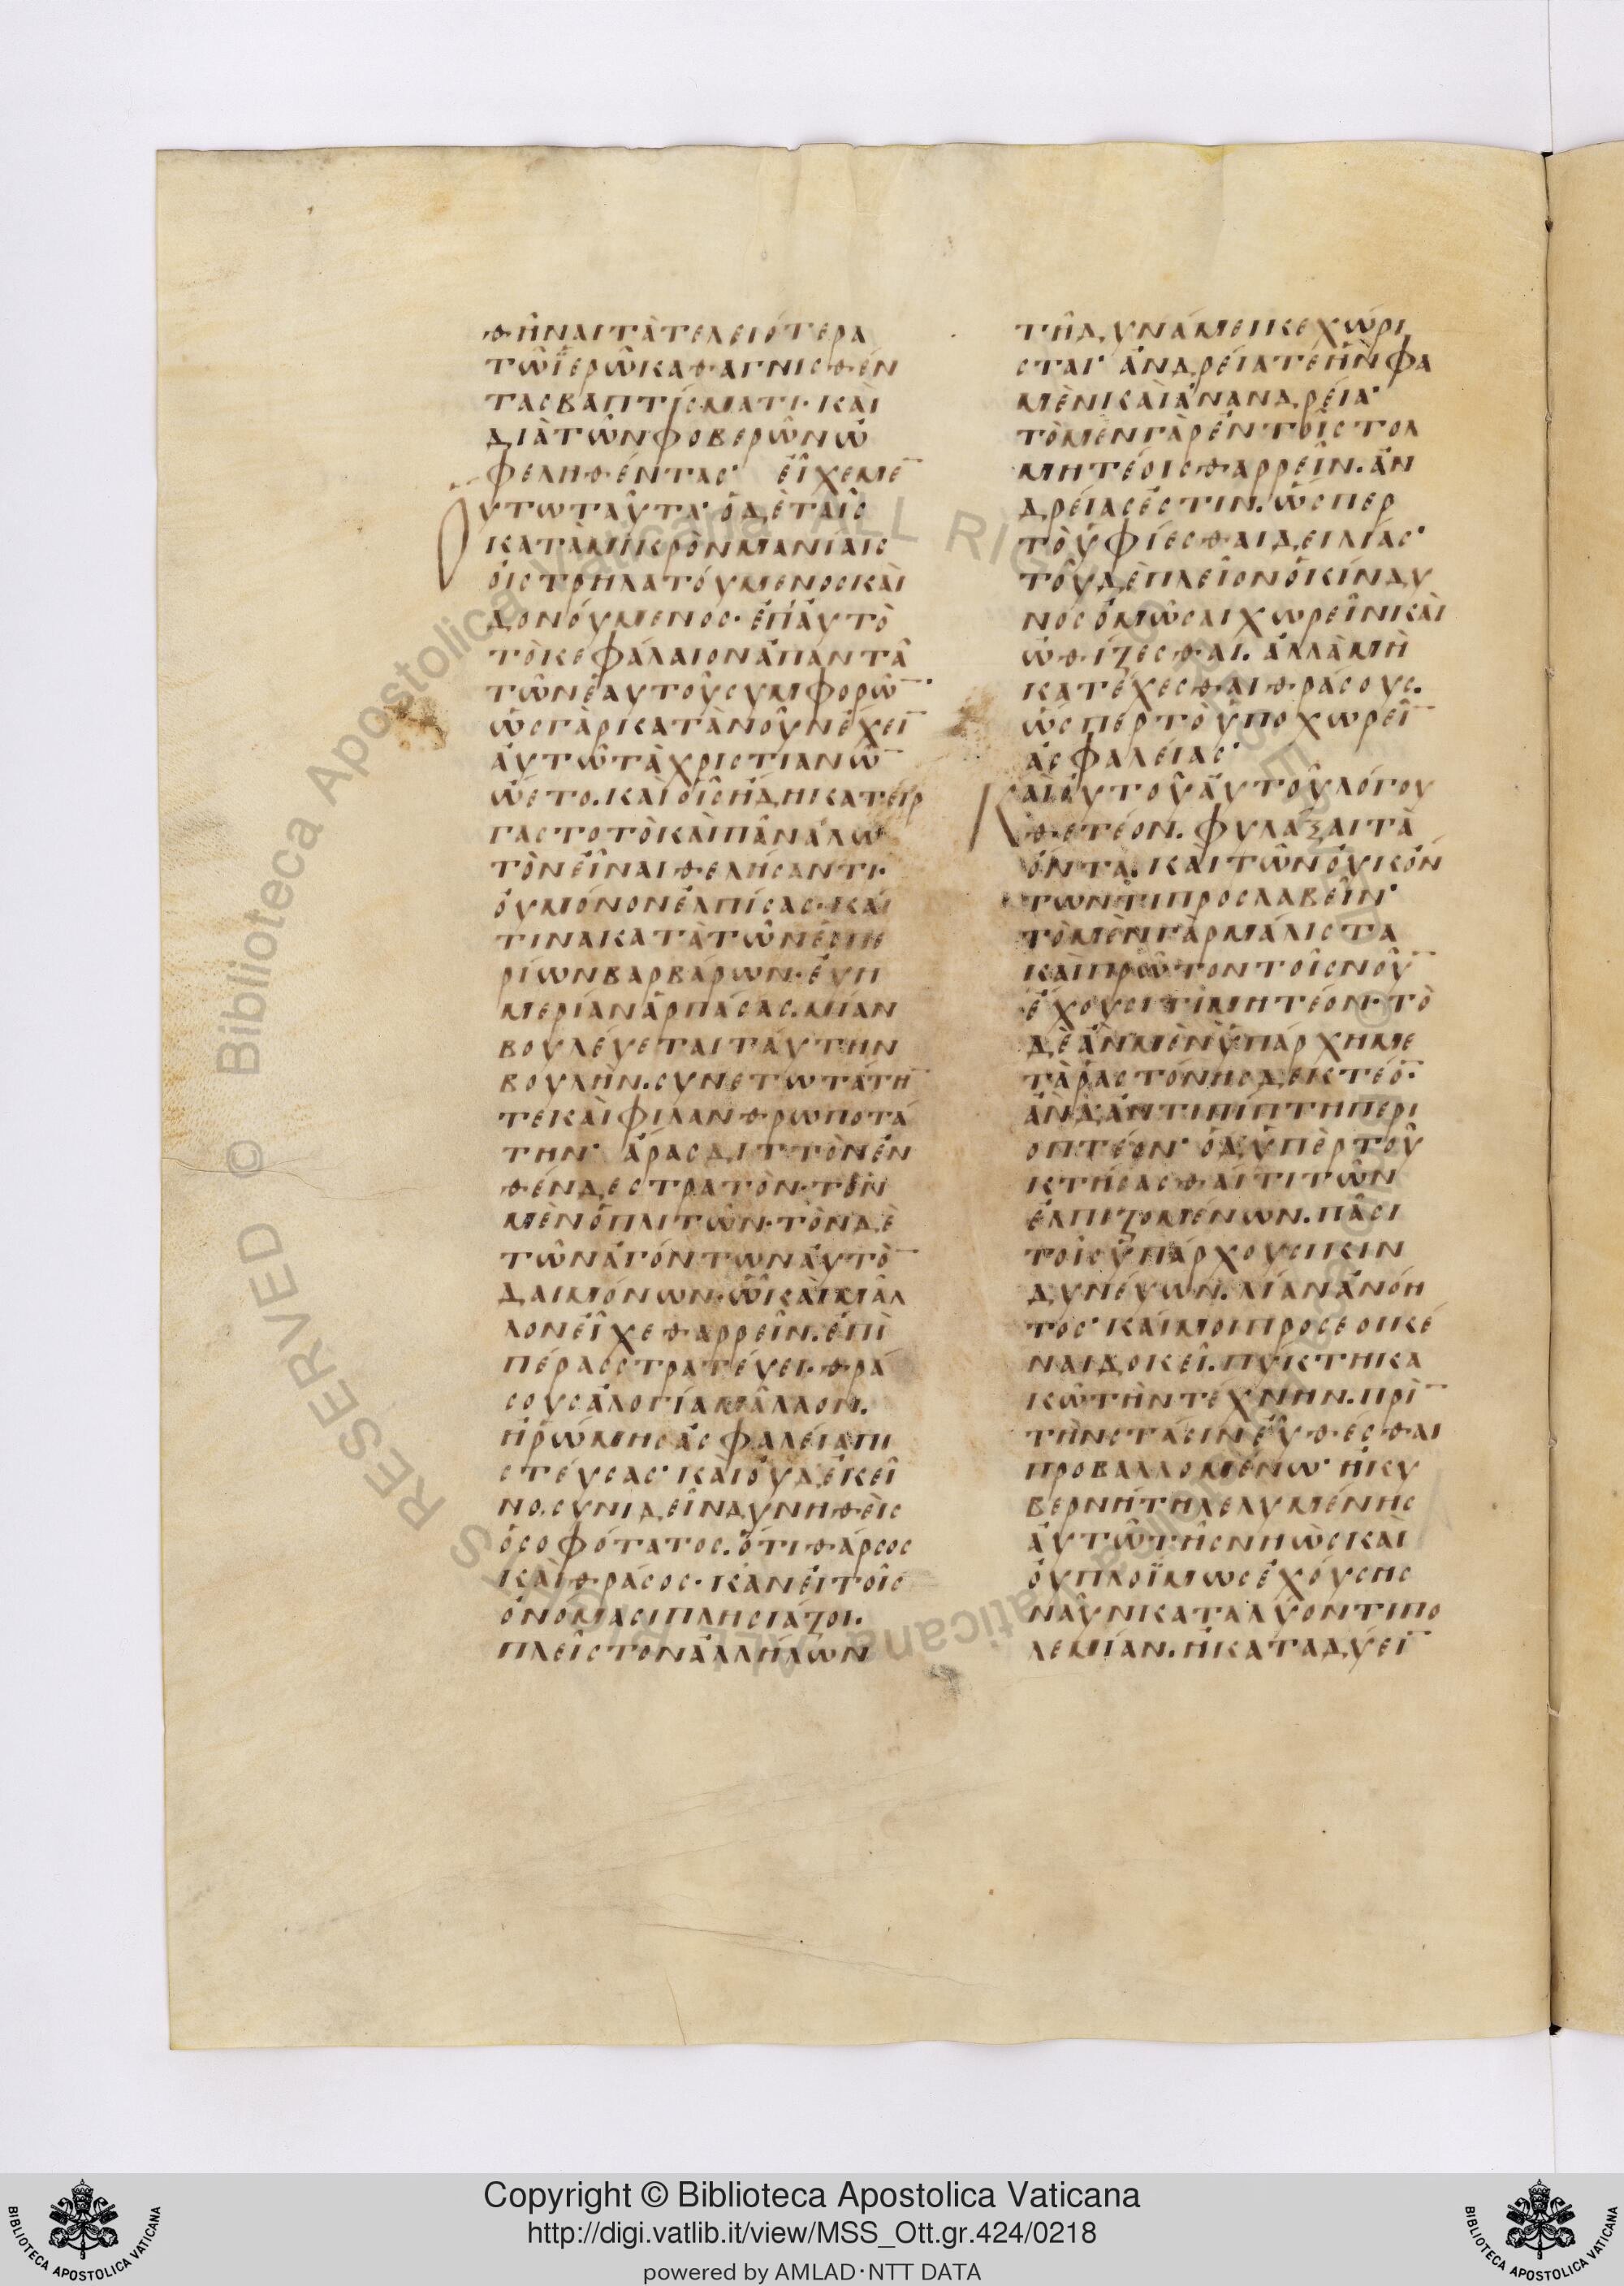 θῆναι τὰ τελειότερα
τῶ ἱερῶ καθαγνισθέν
τας βαπτίσματι· καὶ
διὰ τῶν φοβερῶν ὠ
φεληθέντας· εἶχε μὲ̅
οὕτω ταῦτα· ὁ δὲ ταῖς
κατὰ μικρὸν μανίαις
οἰστρηλατούμενος καὶ
δονούμενος· ἐπ' αὐτὸ
τὸ κεφάλαιον ἀπαντᾶ
τῶν ἑαυτοῦ συμφορῶ̅·
ὡς γὰρ κατὰ νοῦν ἔχει̅
αὐτῶ τὰ χριστιανῶ̅
ὤετο. καὶ οἷς ἤδη κατείρ
γαστο τὸ καὶ πᾶν ἁλω
τὸν εἶναι θελήσαντι·
οὐ μόνον ἐλπίσας· καί
τινα κατὰ τῶν ἑσπε
ρίων βαρβάρων· εὐη
μερίαν ἁρπάσας. μίαν
βουλεύεται ταύτην
βουλὴν. συνετωτάτη̅
τε καὶ φιλανθρωποτά
την· ἄρας διττὸν ἐν
θένδε στρατὸν· τὸν
μὲν ὁπλιτῶν· τὸν δὲ
τῶν ἀγόντων αὐτὸ̅
δαιμόνων· ὧ καὶ μᾶλ
λον εἶχε θαρρεῖν. ἐπὶ
πέρσας στρατεύει· θρά
σους ἀλογία μᾶλλον.
ἢ ῥώμης ἀσφαλεία πι
στεύσας· καὶ οὐδ' ἐκεῖ
νο. συνιδεῖν δυνηθεὶς
ὁ σοφότατος. ὅτι θάρσος
καὶ θράσος· κἂν ἐν τοῖς
ὀνόμασι πλησιάζοι.
πλεῖστον ἀλλήλων
τῆ δυνάμει κεχώρι
σται· ἀνδρεία τε ἣν φα
μὲν καὶ ἀνανδρεία·
τὸ μὲν γὰρ ἐν τοῖς τολ
μητέοις θαρρεῖν. ἀν
δρείας ἐστιν. ὥσπερ
τὸ ὑφίεσθαι δειλίας·
τοῦ δὲ πλεῖον ὁ κίνδυ
νος ὁμῶσαι χωρεῖν καὶ
ὠθίζεσθαι. ἀλλὰ μὴ
κατέχεσθαι θράσους.
ὥσπερ τὸ ὑποχωρεῖ̅
ἀσφαλείας·
Καὶ οὐ τοῦ αὐτοῦ λόγου
θετέον. φυλάξαι τὰ
ὄντα. καὶ τῶν οὐκ ὄν
των τι προσλαβεῖν·
τὸ μὲν γὰρ μάλιστα
καὶ πρῶτον τοῖς νοῦ̅
ἔχουσι τιμητέον· τὸ
δὲ ἂν μὲν ὑπάρχη με
τὰ ῥαστόνης δεκτέο̅·
ἂν δ' ἀντιπίπτη περι
οπτέον· ὁ δ' ὑπὲρ τοῦ
κτήσασθαί τι τῶν
ἐλπιζομένων. πᾶσι
τοῖς ὑπάρχουσι κιν
δυνεύων. λίαν ἀνόη
τος· καί μοι προσεοικέ
ναι δοκεῖ. πύκτη κα
κῶ τὴν τέχνην. πρὶ̅
τὴν στάσιν εὐθέσθαι
προβαλλομένω· ἢ κυ
βερνήτη λελυμένης
αὐτῶ τῆς νηὼς καὶ
οὐ πλοΐμως ἐχούσης
ναῦν καταλύοντι πο
λεμίαν. ἢ καταδύει̅
Copyright © Biblioteca Apostolica Vaticana
http://digi.vatlib.it/view/MSS_Ott.gr.424/0218
powered by AMLAD·NTT DATA